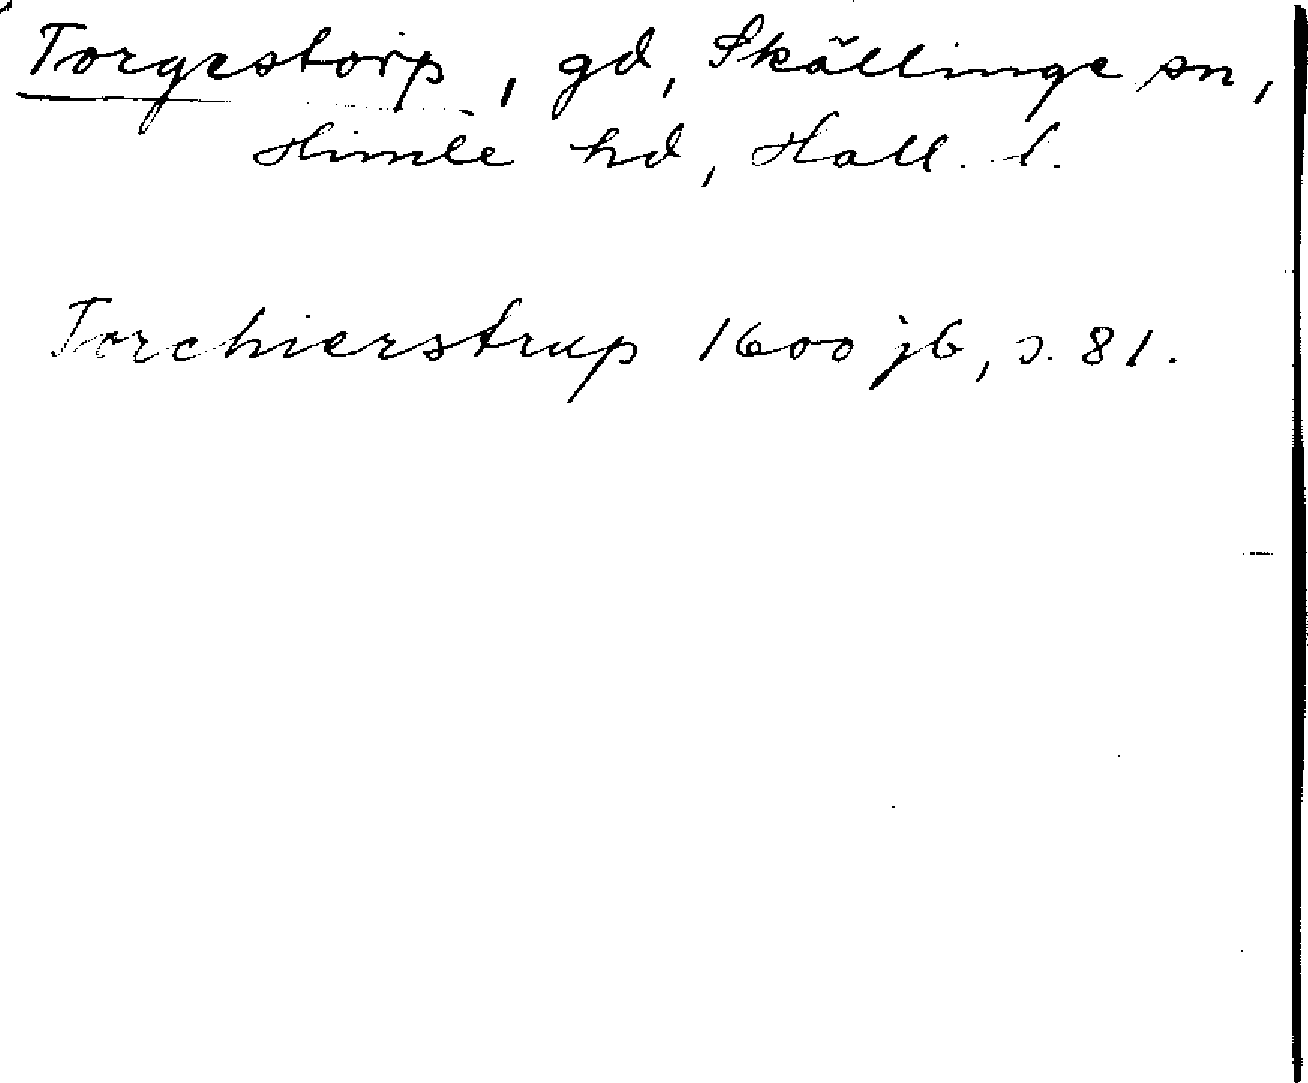 Torgestorp, gd, Skällinge sn,
Himle hd, Hall. l.
Torchierstrup 1600 jb, s. 81.